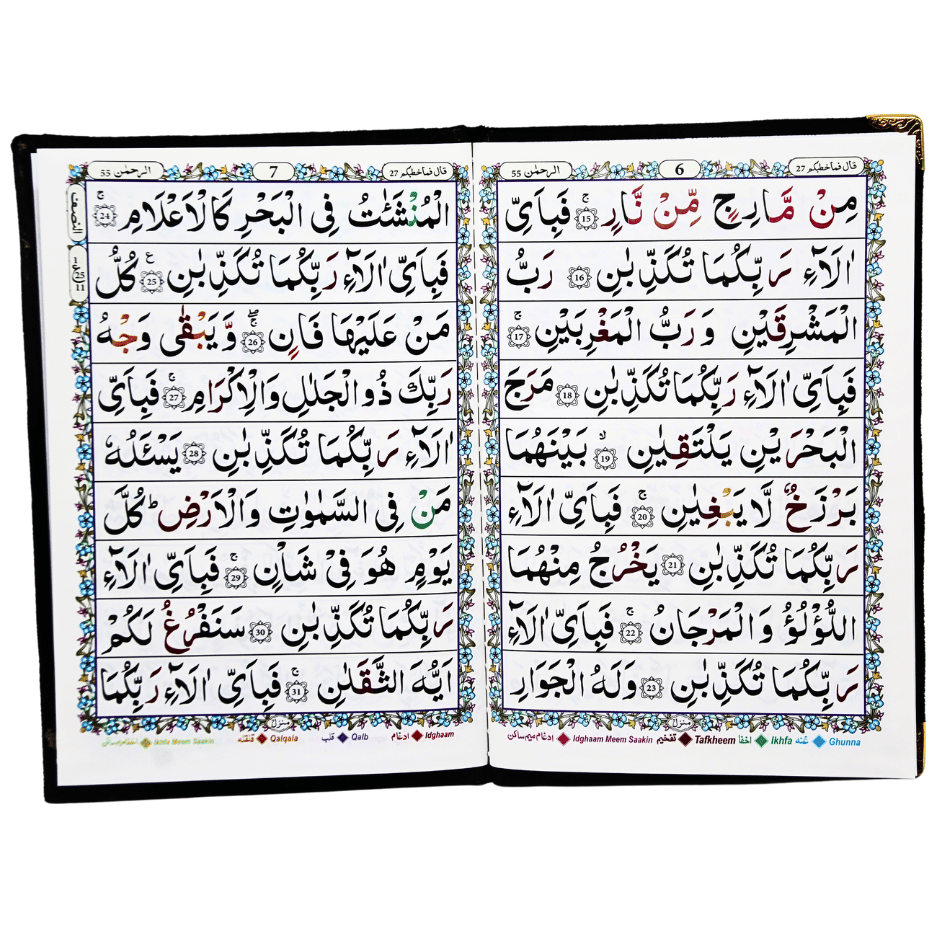 الرحمٰن 55
6
قال فما خطبكم 27
مِنْ مَّارِجٍ مِّنْ نَّارٍ ۚ 15 فَبِاَىِّ
اٰلَآءِ رَبِّكُمَا تُكَذِّبٰنِ 16 رَبُّ
الْمَشْرِقَيْنِ وَرَبُّ الْمَغْرِبَيْنِ ۚ 17
فَبِاَىِّ اٰلَآءِ رَبِّكُمَا تُكَذِّبٰنِ 18 مَرَجَ
الْبَحْرَيْنِ يَلْتَقِيٰنِ ۙ 19 بَيْنَهُمَا
بَرْزَخٌ لَّا يَبْغِيٰنِ ۚ 20 فَبِاَىِّ اٰلَآءِ
رَبِّكُمَا تُكَذِّبٰنِ 21 يَخْرُجُ مِنْهُمَا
اللُّؤْلُؤُ وَالْمَرْجَانُ ۚ 22 فَبِاَىِّ اٰلَآءِ
رَبِّكُمَا تُكَذِّبٰنِ 23 وَلَهُ الْجَوَارِ
منزل
ادغام میم ساکن Idghaam Meem Saakin تفخیم Tafkheem اخفا Ikhfa غنه Ghunna
الرحمٰن 55
7
قال فما خطبكم 27
النصف
1
25
11
الْمُنْشَئٰتُ فِى الْبَحْرِ كَالْاَعْلَامِ ۚ 24
فَبِاَىِّ اٰلَآءِ رَبِّكُمَا تُكَذِّبٰنِ 25 ع كُلُّ
مَنْ عَلَيْهَا فَانٍ ۚ 26 وَّيَبْقٰى وَجْهُ
رَبِّكَ ذُو الْجَلٰلِ وَالْاِكْرَامِ ۚ 27 فَبِاَىِّ
اٰلَآءِ رَبِّكُمَا تُكَذِّبٰنِ 28 يَسْـَٔلُهٗ
مَنْ فِى السَّمٰوٰتِ وَالْاَرْضِ ؕ كُلَّ
يَوْمٍ هُوَ فِىْ شَاْنٍ ۚ 29 فَبِاَىِّ اٰلَآءِ
رَبِّكُمَا تُكَذِّبٰنِ 30 سَنَفْرُغُ لَكُمْ
اَيُّهَ الثَّقَلٰنِ ۚ 31 فَبِاَىِّ اٰلَآءِ رَبِّكُمَا
منزل
Ikhfa Meem Saakin قلقله Qalqala قلب Qalb ادغام Idghaam